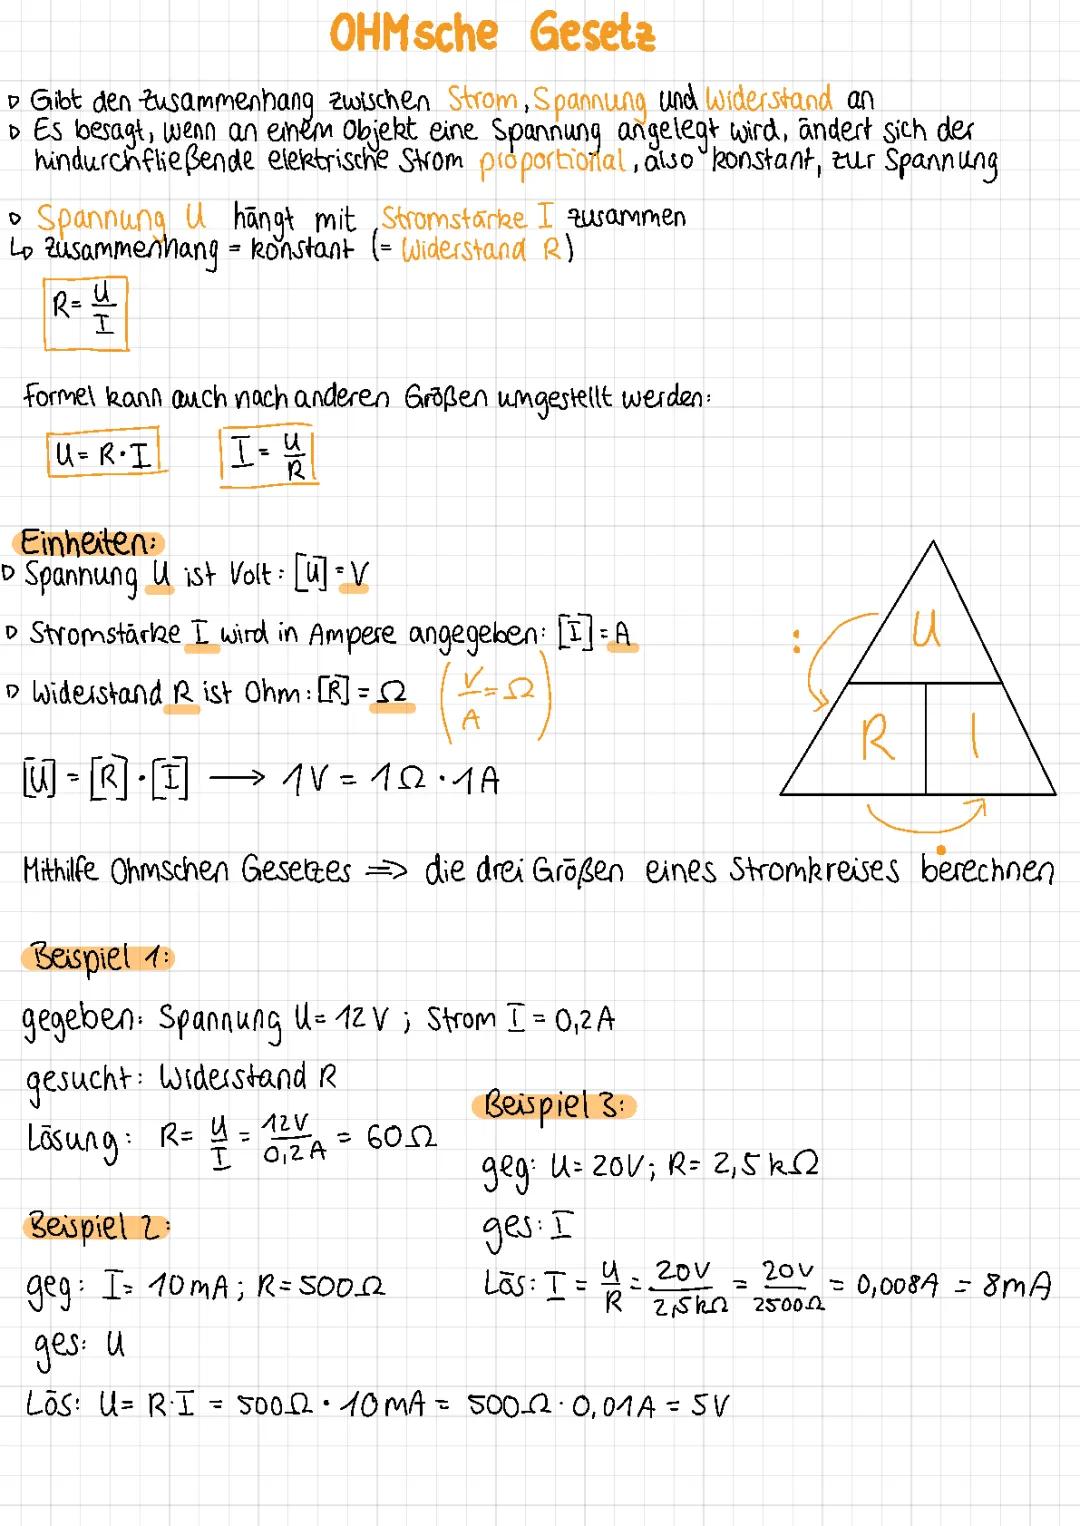 OHMsche Gesetz
▷ Gibt den Zusammenhang zwischen Strom, Spannung und Widerstand an
▷ Es besagt, wenn an einem Objekt eine Spannung angelegt wird, ändert sich der
hindurchfließende elektrische Strom proportional, also konstant, zur Spannung
▷ Spannung U hängt mit Stromstärke I zusammen
↳ Zusammenhang = konstant (= Widerstand R)
R = U/I
Formel kann auch nach anderen Größen umgestellt werden:
U = R · I   I = U/R
Einheiten:
▷ Spannung U ist Volt: [U] = V
▷ Stromstärke I wird in Ampere angegeben: [I] = A
▷ Widerstand R ist Ohm: [R] = Ω (V/A = Ω)
[U] = [R] · [I] ⟶ 1V = 1Ω · 1A
:
U
R I
·
Mithilfe Ohmschen Gesetzes ⇒ die drei Größen eines Stromkreises berechnen
Beispiel 1:
gegeben: Spannung U = 12V; Strom I = 0,2A
gesucht: Widerstand R
Lösung: R = U/I = 12V/0,2A = 60Ω
Beispiel 2:
geg: I = 10mA; R = 500Ω
ges: U
Lös: U = R·I = 500Ω · 10mA = 500Ω · 0,01A = 5V
Beispiel 3:
geg: U = 20V; R = 2,5kΩ
ges: I
Lös: I = U/R = 20V/2,5kΩ = 20V/2500Ω = 0,008A = 8mA